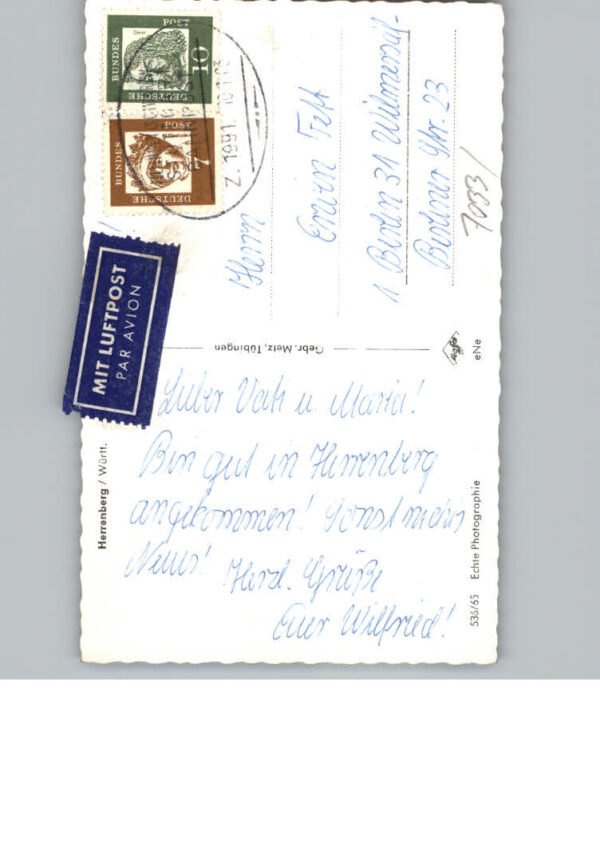 DEUTSCHE
BUNDES
POST
10
DEUTSCHE
BUNDES
POST
7
Z. 1991
MIT LUFTPOST
PAR AVION
Herrn
Erwin
1 Berlin 31 Wilmersd-
Berliner Str. 23
7033/
Gebr. Metz, Tübingen
eNe
Lieber Vati u. Maria!
Bin gut in Herrenberg
angekommen! Sonst nichts
Neues! Herzl. Grüße
Euer Wilfried!
Herrenberg / Württ.
536/65 Echte Photographie